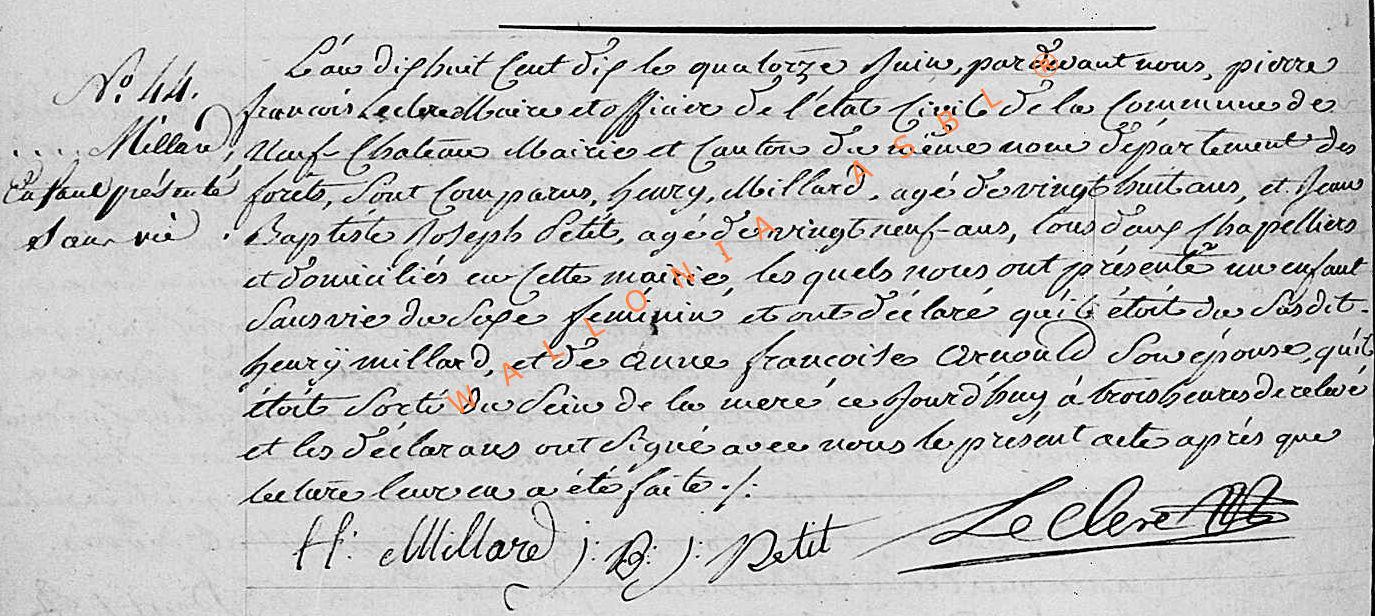 N.º 44.
.... Millard,
Enfant présenté
sans vie .
L'an dix huit Cent dix le quatorze Juin, pardevant nous, pierre
françois Leclerc Maire et officier de l'état Civil de la Commune de
Neuf-Chateau Mairie et Canton du même nom département des
forêts, sont Comparus, henry, Millard, agé de vingt huit ans, et Jean
Baptiste Joseph Petit, agé de vingt neuf-ans, tous deux Chapelliers
et domiciliés en Cette mairie, les quels nous ont présenté un enfant
sans vie du sexe féminin et ont déclaré qu'il étoit du susdit-
henrÿ millard, et de anne françoise Arnould son épouse, qu'il
étoit sorti du sein de la mere ce Jourd'huy, à trois heures de relevé
et les déclarans ont signé avec nous le présent acte après que
lecture leur en a été faite ./:
H: Millard j: B: j: Petit Leclerc
WALLONIA ASBL ®